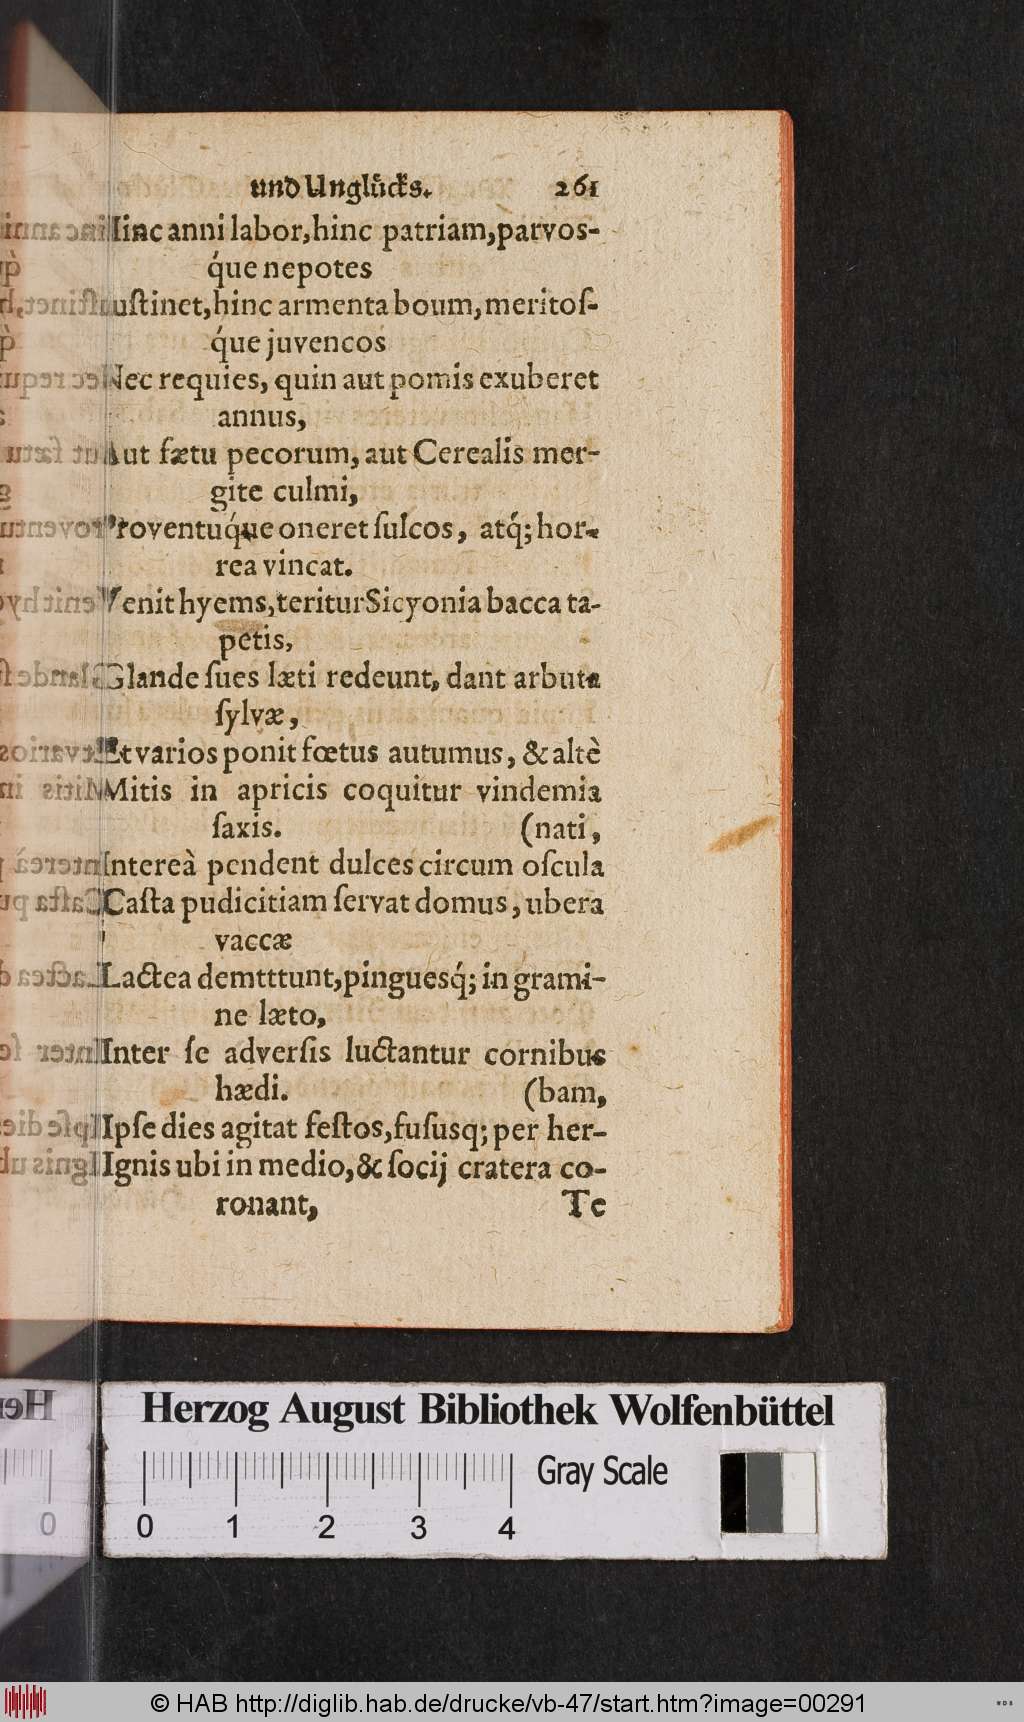 und Unglücks. 261
Hinc anni labor,hinc patriam,parvos-
q́ue nepotes
suſtinet,hinc armenta boum,meritoſ-
q́ue juvencos
Nec requies, quin aut pomis exuberet
annus,
Aut fætu pecorum, aut Cerealis mer-
gite culmi,
Proventuq́ue oneret ſulcos, atq́; hor-
rea vincat.
Venit hyems,teritur Sicyonia bacca ta-
petis,
Glande ſues læti redeunt, dant arbuta
ſylvæ,
Et varios ponit fœtus autumus, & altè
Mitis in apricis coquitur vindemia
ſaxis. (nati,
Intereà pendent dulces circum oſcula
Caſta pudicitiam ſervat domus, ubera
vaccæ
Lactea demtttunt,pinguesq́; in grami-
ne læto,
Inter ſe adverſis luctantur cornibus
hædi. (bam,
Ipſe dies agitat feſtos,fuſusq; per her-
Ignis ubi in medio,& ſocij cratera co-
ronant, Te
Herzog August Bibliothek Wolfenbüttel
Gray Scale
0 1 2 3 4
© HAB http://diglib.hab.de/drucke/vb-47/start.htm?image=00291